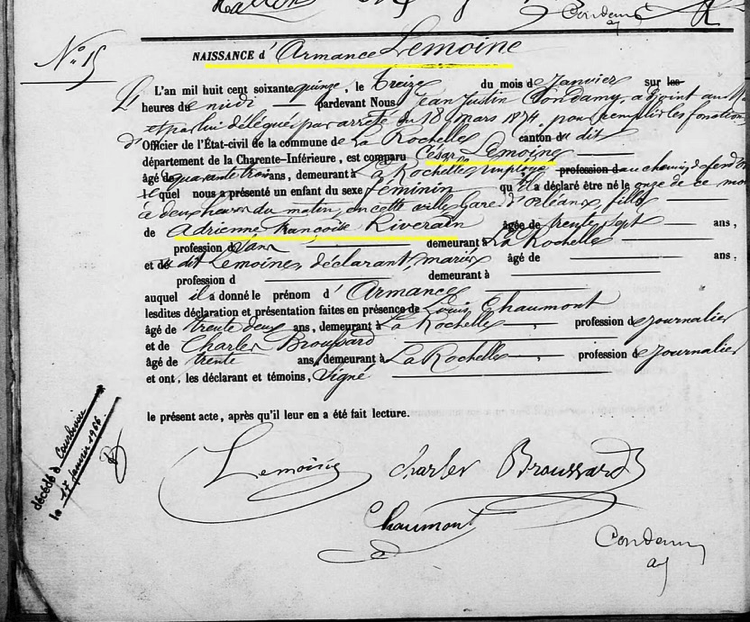 Condamy
aj
N.º 15
NAISSANCE d'Armance Lemoine
L'an mil huit cent soixante quinze, le treize du mois de Janvier sur les
heures de midi pardevant Nous Jean Justin Condamy, adjoint au
et par lui délégué par arrêté du 18 mars 1874, pour remplir les fonctions
d'Officier de l'État-civil de la commune de La Rochelle canton dit
département de la Charente-Inférieure, est comparu César Lemoine
âgé de quarante trois ans, demeurant à La Rochelle employé profession d au chemin de fer d'Orl
lequel nous a présenté un enfant du sexe féminin qu'il a déclaré être né le onze de ce mois
à deux heures du matin, en cette ville Gare d'Orléans, fille
de Adrienne Françoise Riverain âgée de trente sept ans,
profession d sans demeurant à La Rochelle
et du dit Lemoine, déclarant, mariés âgé de ans,
profession d demeurant à
auquel il a donné le prénom d'Armance
lesdites déclaration et présentation faites en présence de Louis Chaumont
âgé de trente deux ans, demeurant à La Rochelle profession de journalier
et de Charles Broussard
âgé de trente ans, demeurant à La Rochelle profession de journalier
et ont, les déclarant et témoins, signé
le présent acte, après qu'il leur en a été fait lecture.
décédé à Courbevoie
le 17 janvier 1966
Lemoine Charles Broussard
Chaumont
Condamy
aj